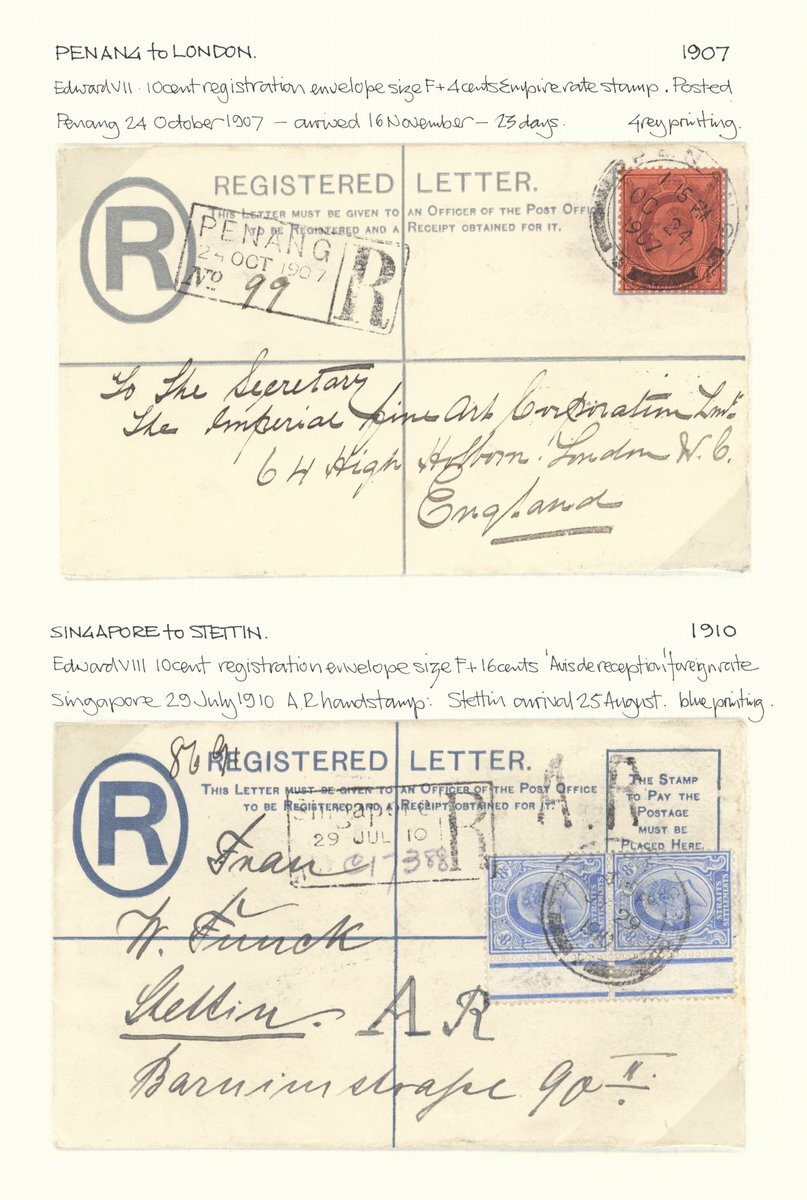 PENANG to LONDON. 1907
Edward VII · 10cent registration envelope size F + 4 cents Empire rate stamp. Posted
Penang 24 October 1907 — arrived 16 November — 23 days. Grey printing.
REGISTERED LETTER.
THIS LETTER MUST BE GIVEN TO AN OFFICER OF THE POST OFFI
TO BE REGISTERED AND A RECEIPT OBTAINED FOR IT.
R
PENANG
24 OCT 1907
No 99
R
PENANG
1.15 PM
OC 24
1907
To The Secretary
The Imperial Fine Art Corporation Lmt
64 High Holborn. London W.C.
England
SINGAPORE to STETTIN. 1910
Edward VIII 10cent registration envelope size F + 16cents 'Avis de reception' foreign rate
Singapore 29 July 1910 A.R handstamp: Stettin arrival 25 August. blue printing.
REGISTERED LETTER.
THIS LETTER MUST BE GIVEN TO AN OFFICER OF THE POST OFFICE
TO BE REGISTERED AND A RECEIPT OBTAINED FOR IT.
R
A.R
THE STAMP
TO PAY THE
POSTAGE
MUST BE
PLACED HERE.
Singapore
29 JUL 10
R
STRAITS
SETTLEMENTS
STRAITS
SETTLEMENTS
29
1910
Frau
W. Funck
Stettin. A R
Barnimstraße 90 II.